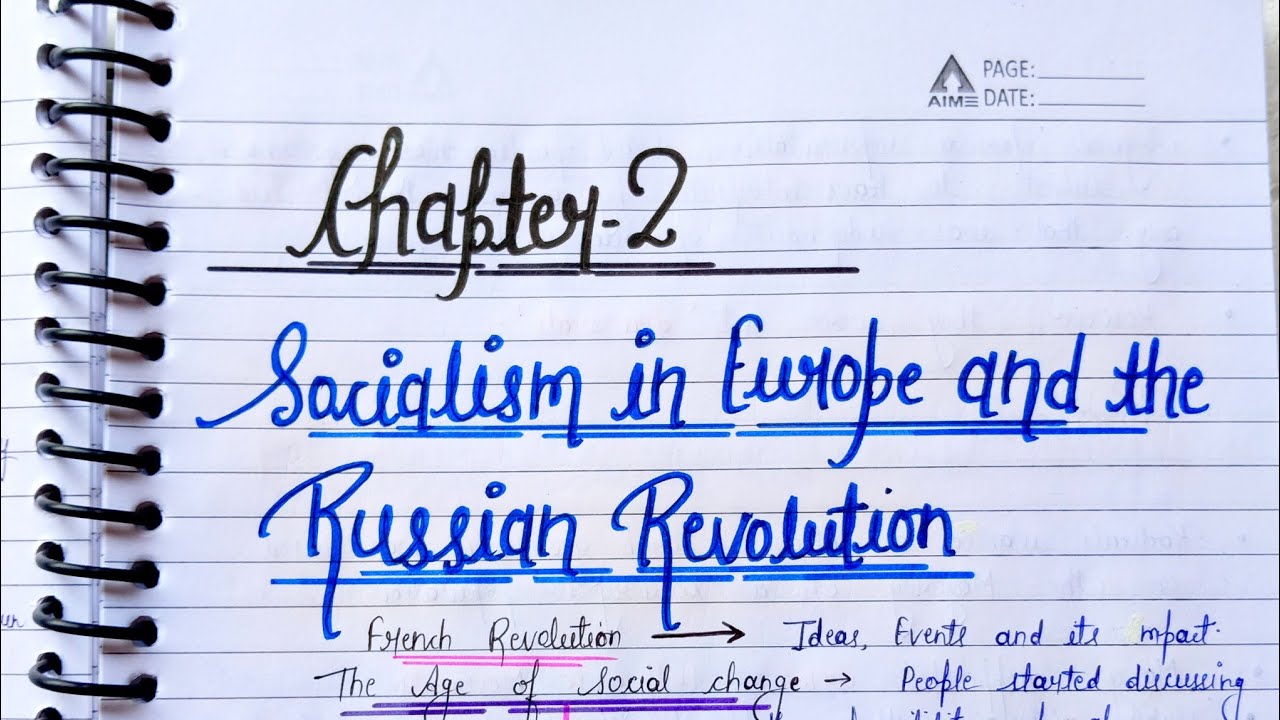 AIME PAGE:
DATE:
Chapter-2
Socialism in Europe and the
Russian Revolution
French Revolution → Ideas, Events and its mpact.
The Age of Social change → People started discussing